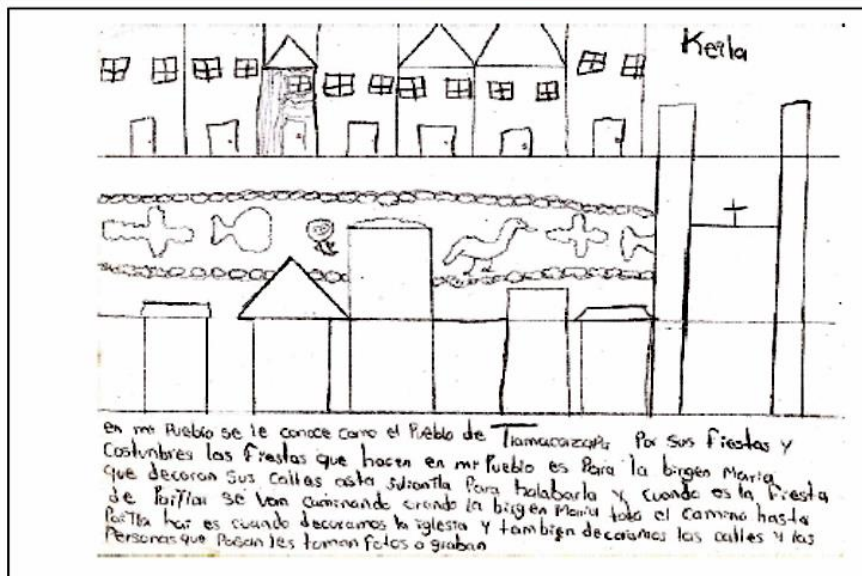 Keila
en mi Pueblo se le conoce como el Pueblo de Tlamacazapa Por Sus Fiestas y
Costunbres las Fiestas que hacen en mi Pueblo es Para la birgen Maria
que decoran Sus calles asta Para halabarla y cuando es la Fiesta
de se van caminando la birgen Maria todo el camino hasta
hai es cuando decoramos la iglesia y tambien decoramos las calles y las
Personas que Pasan les toman fotos o graban